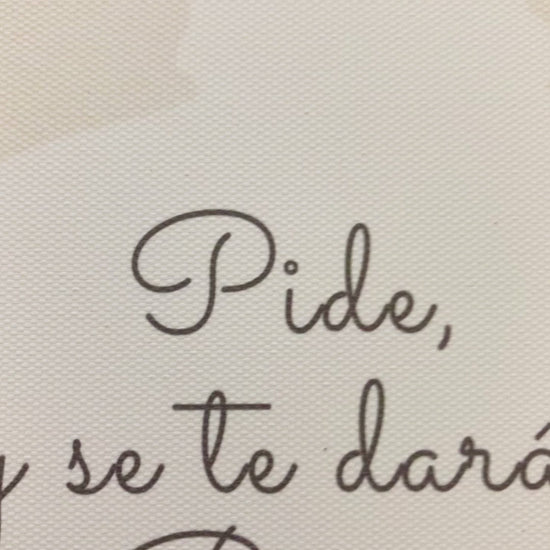 Pide,
y se te dará